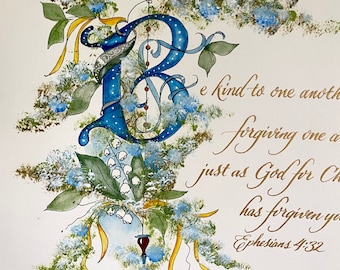 Be kind to one anoth
forgiving one a
just as God for Ch
has forgiven yo
Ephesians 4:32